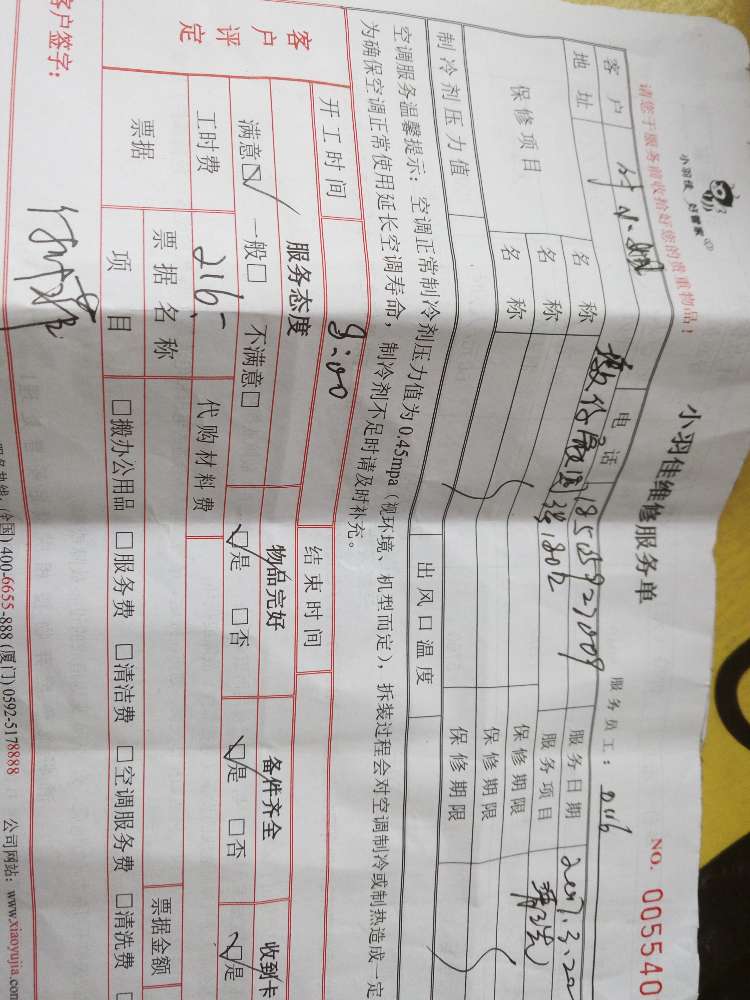 小羽佳 好管家
请您于服务前收拾好您的贵重物品！
小羽佳维修服务单
NO. 005540
服务员工：
客户 电话 18505927009 服务日期
地址 服务项目 清洗
保修项目 名称 保修期限
名称 保修期限
名称 保修期限
制冷剂压力值 出风口温度
空调服务温馨提示：空调正常制冷剂压力值为 0.45mpa（视环境、机型而定），拆装过程会对空调制冷或制热造成一定
为确保空调正常使用延长空调寿命，制冷剂不足时请及时补充。
开工时间 9:00 结束时间
客户评定 服务态度 物品完好 备件齐全 收到卡
满意☑ 一般□ 不满意□ ☑是 □否 ☑是 □否 ☑是
工时费 216- 代购材料费
票据 票据名称 票据金额
项目 □搬办公用品 □服务费 □清洁费 □空调服务费 □清洗费
客户签字：
(全国) 400-6655-888 (厦门) 0592-5178888 公司网站：www.xiaoyujia.com